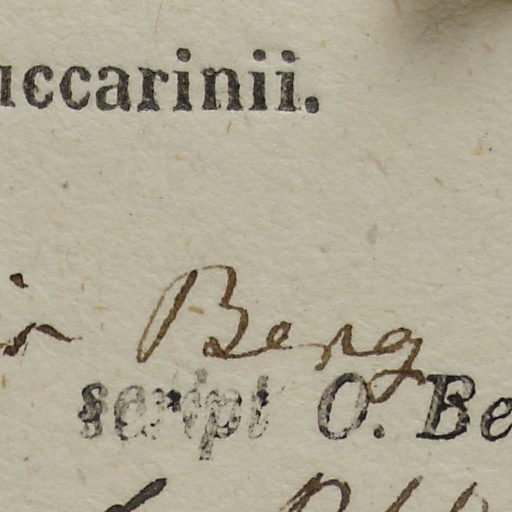 uccarinii.
Berg
script O. Be